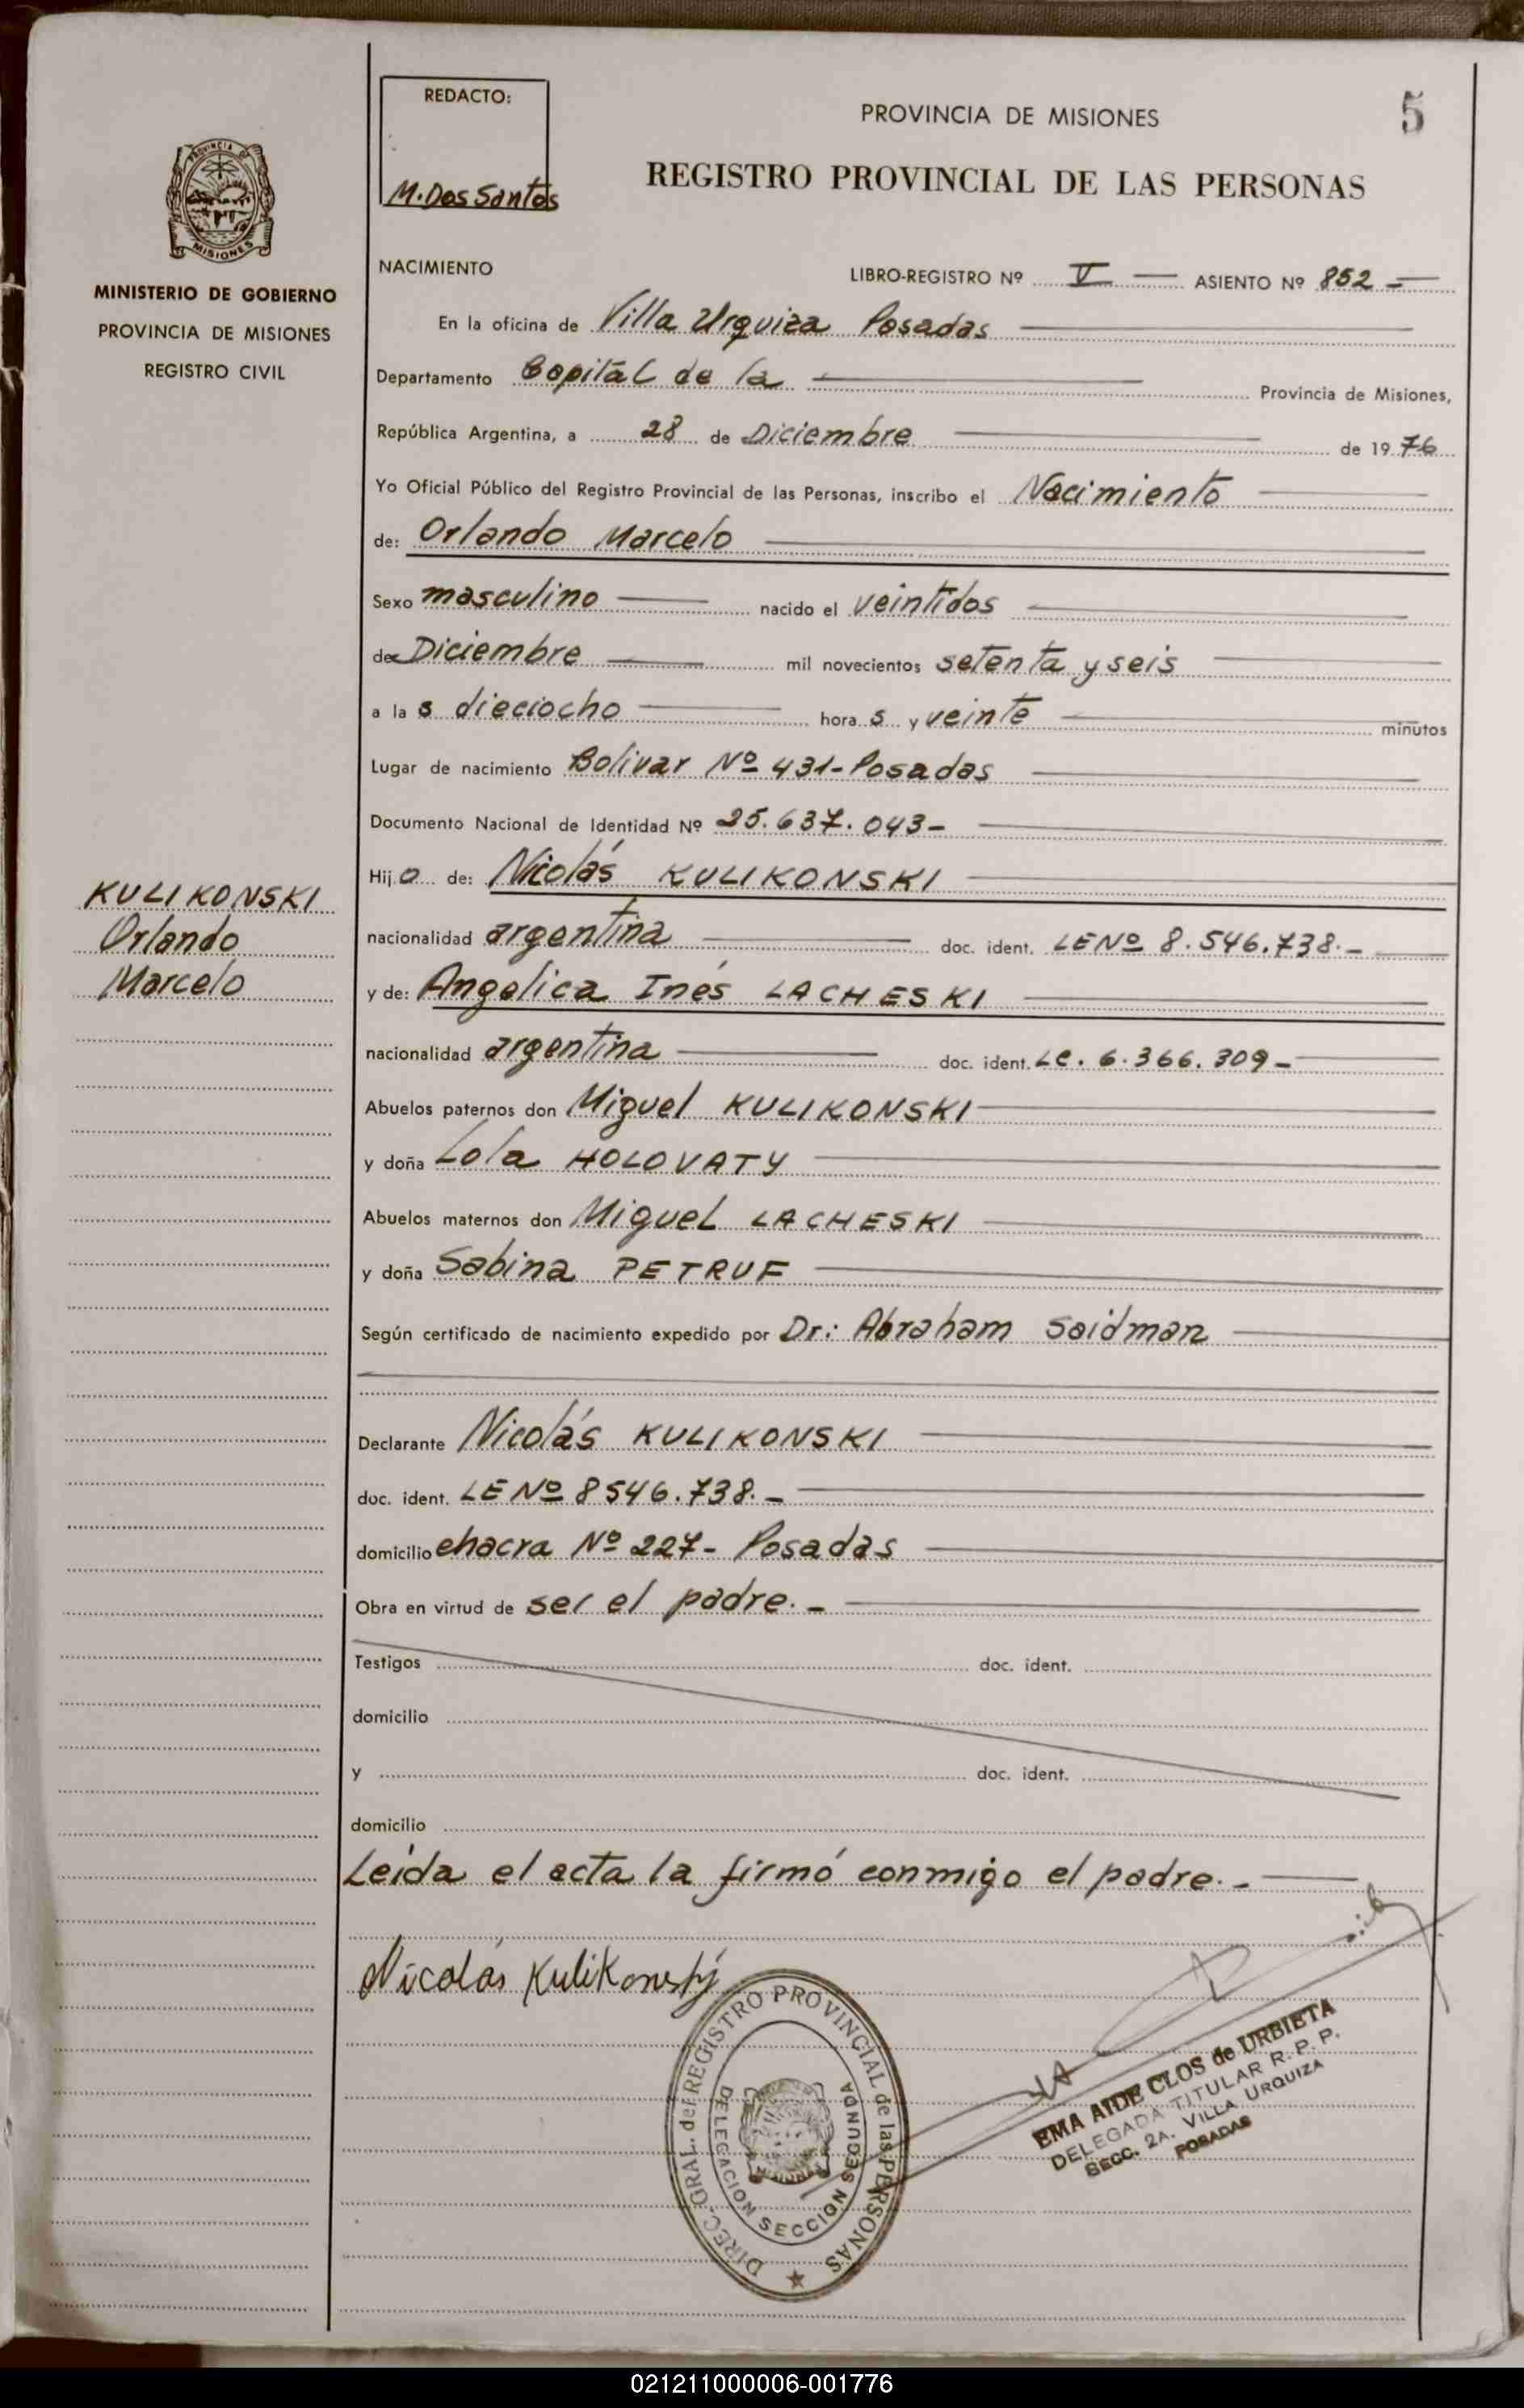 REDACTO:
M. Dos Santos
PROVINCIA DE MISIONES
5
REGISTRO PROVINCIAL DE LAS PERSONAS
PROVINCIA DE
MISIONES
MINISTERIO DE GOBIERNO
PROVINCIA DE MISIONES
REGISTRO CIVIL
NACIMIENTO LIBRO-REGISTRO Nº V — ASIENTO Nº 852 -
En la oficina de Villa Urquiza Posadas
Departamento Capital de la Provincia de Misiones,
República Argentina, a 28 de Diciembre de 1976
Yo Oficial Público del Registro Provincial de las Personas, inscribo el Nacimiento
de: Orlando Marcelo
Sexo masculino nacido el veintidos
de Diciembre mil novecientos setenta y seis
a las dieciocho horas y veinte minutos
Lugar de nacimiento Bolivar Nº 431- Posadas
Documento Nacional de Identidad Nº 25.637.043-
Hijo de: Nicolás KULIKONSKI
KULIKONSKI
Orlando
Marcelo
nacionalidad argentina doc. ident. LE Nº 8.546.738.-
y de: Angelica Inés LACHESKI
nacionalidad argentina doc. ident. LC. 6.366.309-
Abuelos paternos don Miguel KULIKONSKI
y doña Lola HOLOVATY
Abuelos maternos don Miguel LACHESKI
y doña Sabina PETRUF
Según certificado de nacimiento expedido por Dr: Abraham Saidman
Declarante Nicolás KULIKONSKI
doc. ident. LE Nº 8546.738.-
domicilio chacra Nº 227- Posadas
Obra en virtud de ser el padre.-
Testigos doc. ident.
domicilio
y doc. ident.
domicilio
Leída el acta la firmó conmigo el padre.-
Nicolás Kulikonski
DIREC. GRAL. del REGISTRO PROVINCIAL de las PERSONAS
DELEGACION SECCION SEGUNDA
EMA AIDE CLOS de URBIETA
DELEGADA TITULAR R. P. P.
SECC. 2A. VILLA URQUIZA
POSADAS
021211000006-001776